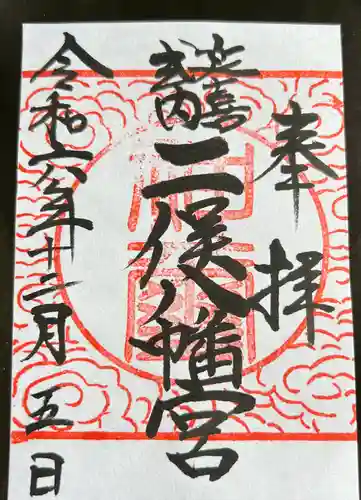 奉拝
延喜
式内
二俣八幡宮
令和六年十二月五日